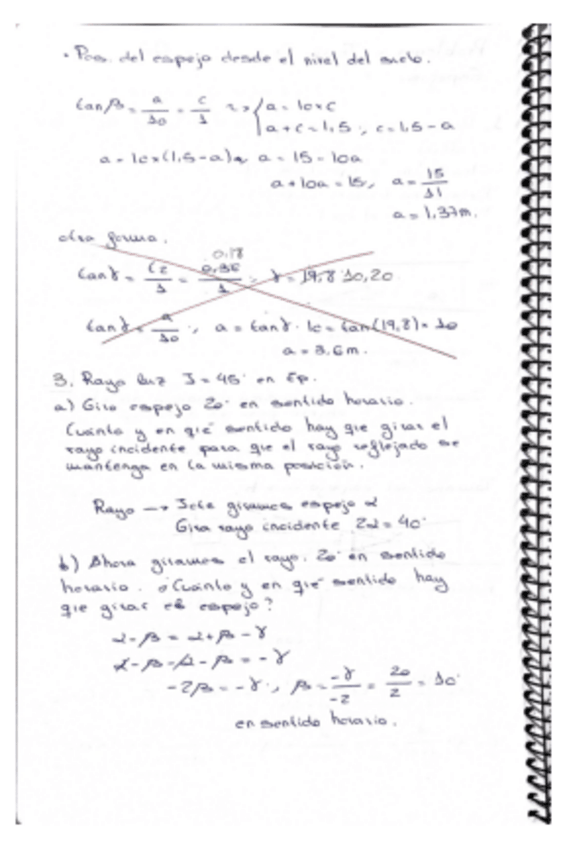 · Pos. del espejo desde el nivel del suelo.
tan β = a/10 = c/1 → { a = 10×c
a + c = 1,5 ; c = 1,5 - a
a = 10×(1,5-a) a = 15 - 10a
a + 10a = 15, a = 15/11
a = 1,37m.
otra forma.
0,18
tan γ = c2/1 = 0,36/1 ; γ = 19,8 10,20
tan γ = a/10 ; a = tan γ · 10 = tan(19,8) × 10
a = 3,6m.
3. Rayo luz I = 45° en Ep.
a) Giro espejo 20° en sentido horario.
Cuánto y en qué sentido hay que girar el
rayo incidente para que el rayo reflejado se
mantenga en la misma posición.
Rayo → Icte giramos espejo α
Gira rayo incidente 2α = 40°
b) Ahora giramos el rayo. 20° en sentido
horario. ¿Cuánto y en qué sentido hay
que girar el espejo?
α - β = α + β - γ
α - β - α - β = - γ
-2β = -γ ; β = -γ/-2 = 20/2 = 10°
en sentido horario.